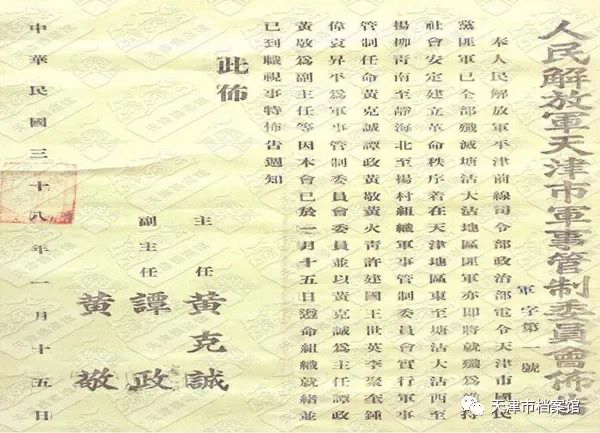 人民解放軍天津市軍事管制委員會佈告
軍字第一號
奉人民解放軍平津前線司令部政治部電令天津市國民
黨匪軍已全部殲滅塘沽大沽地區匪軍亦即將就殲爲維持
社會安定建立革命秩序着在天津地區東至塘沽大沽西至
楊柳青南至靜海北至楊村組織軍事管制委員會實行軍事
管制任命黃克誠譚政黃敬黃火青許建國王世英李聚奎鍾
偉袁昇平爲軍事管制委員會委員並以黃克誠爲主任譚政
黃敬爲副主任等因本會已於一月十五日遵命組織就緒並
已到職視事特佈告週知
此佈
主任 黃克誠
副主任 譚政
黃敬
中華民國三十八年一月十五日
天津市档案馆